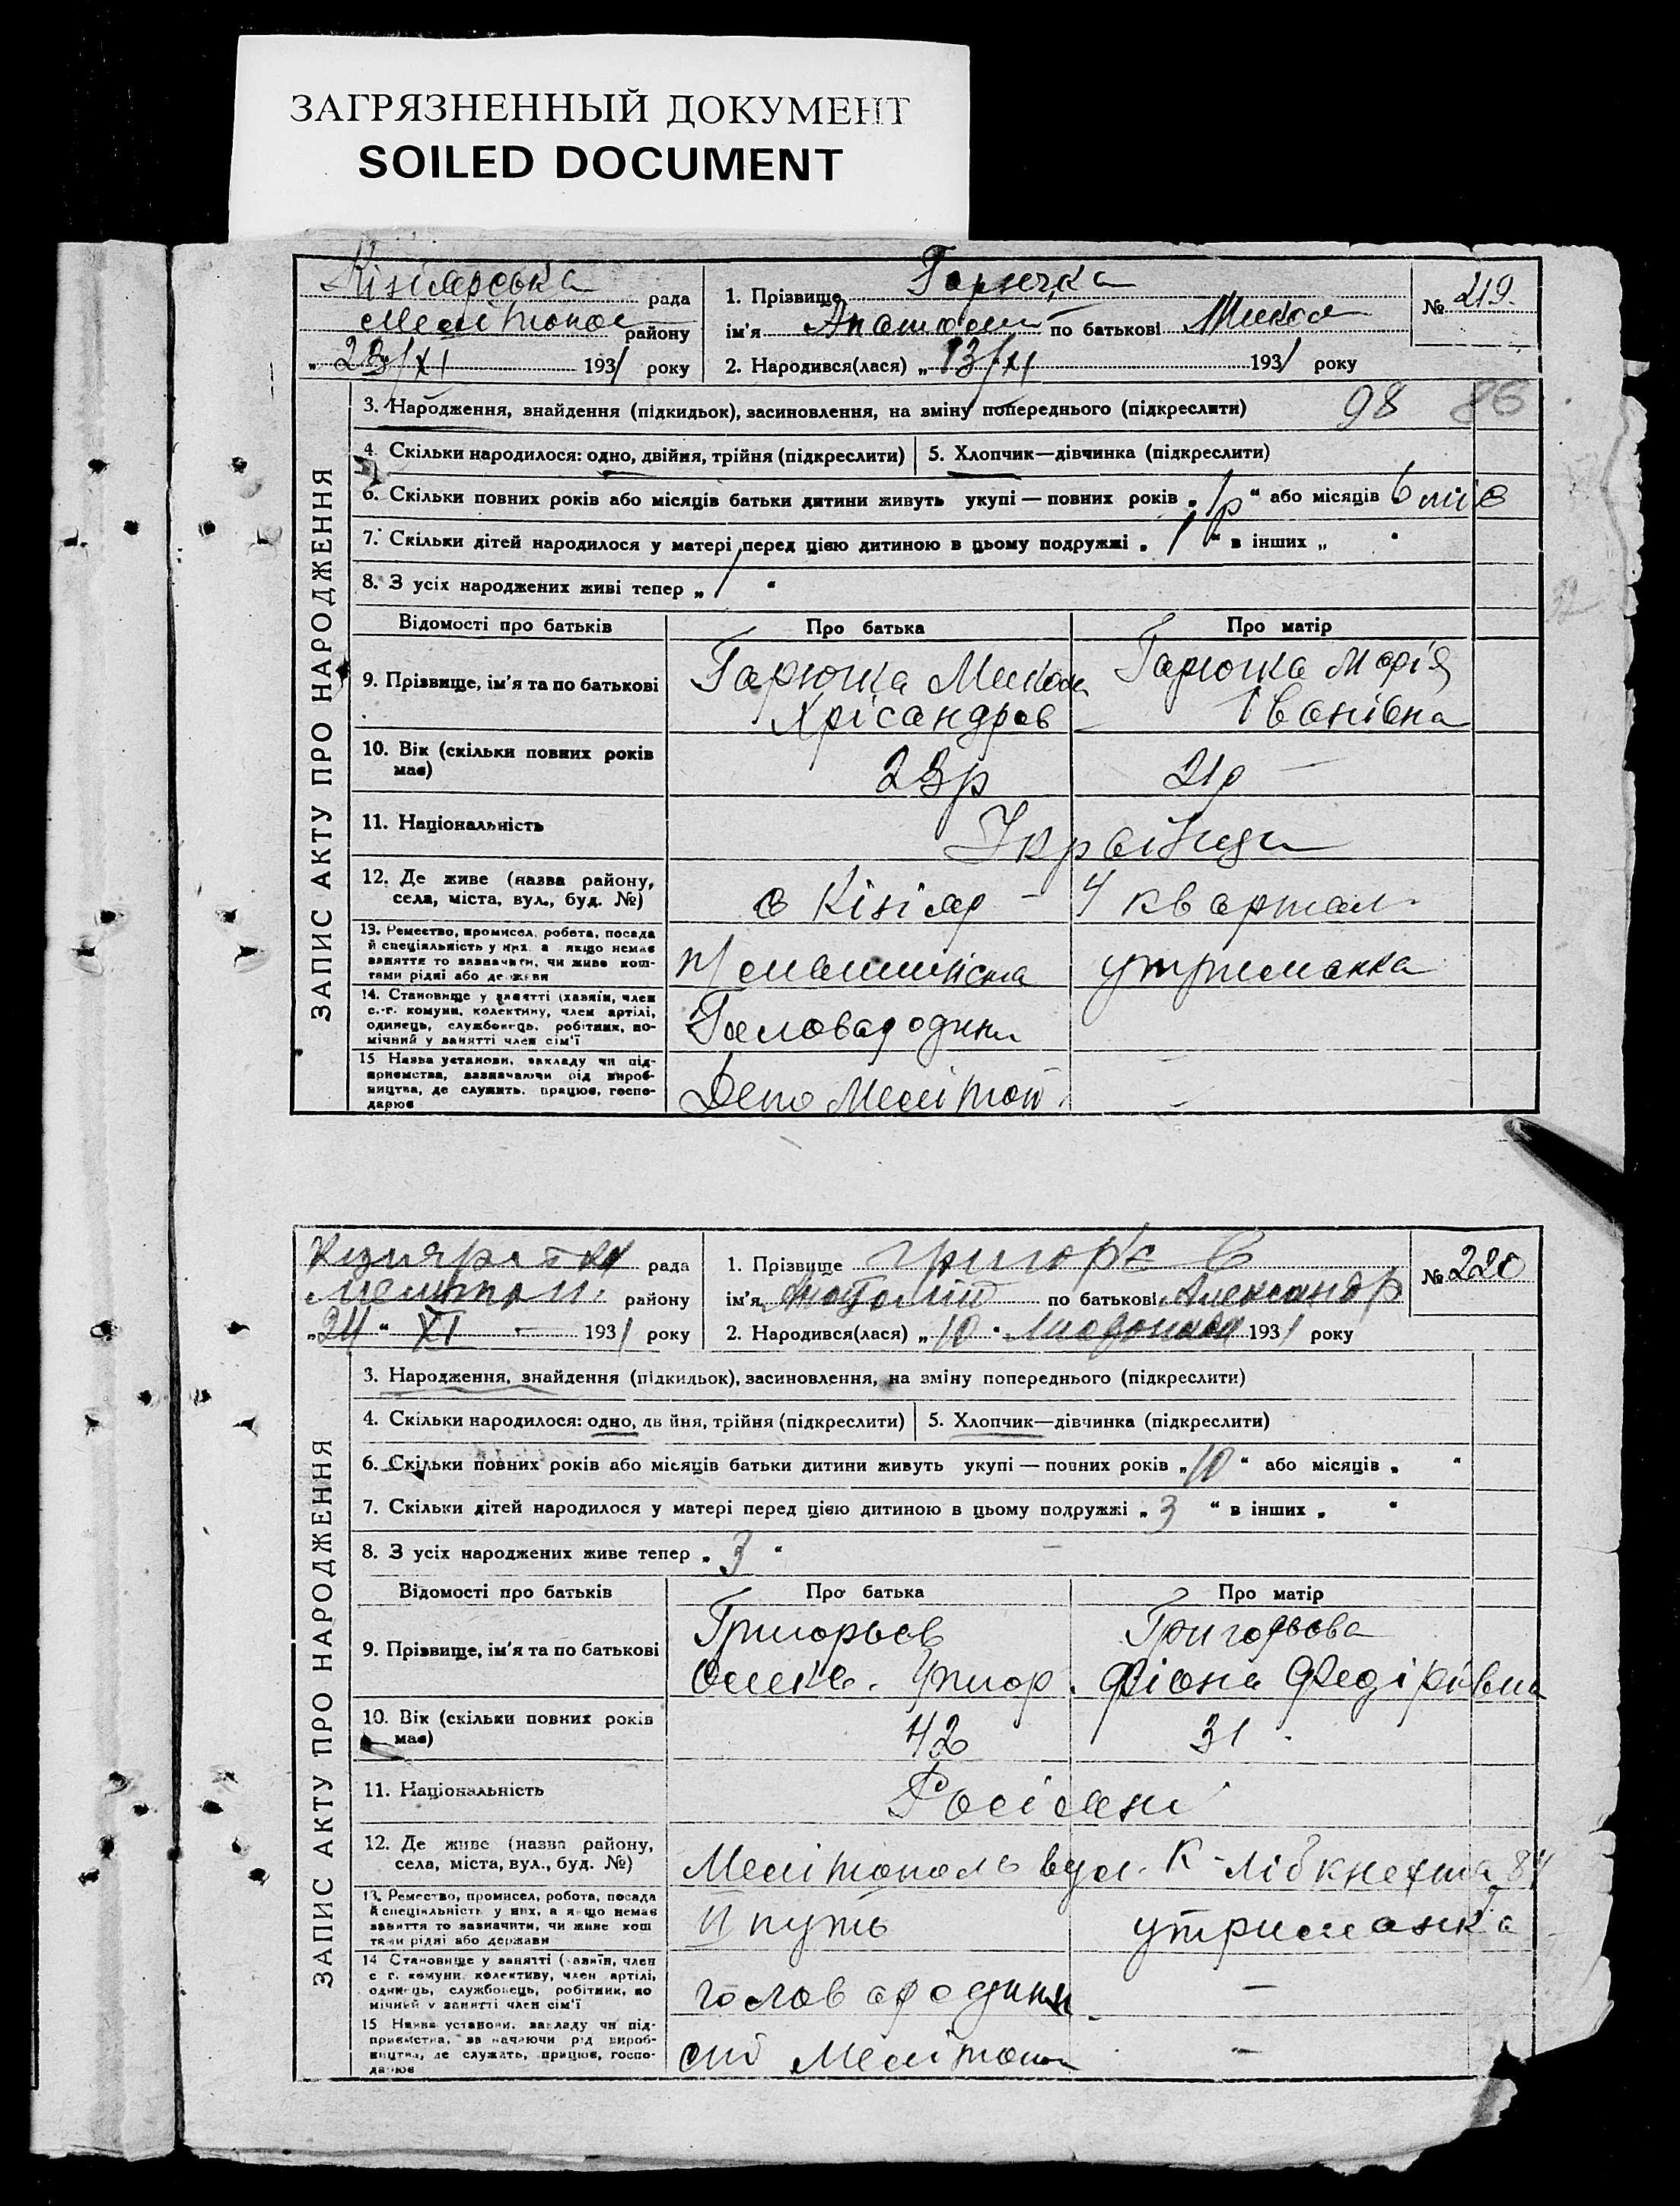 ЗАГРЯЗНЕННЫЙ ДОКУМЕНТ
SOILED DOCUMENT
Кізіярська рада
Меліtопол району
„ 23/XI 1931 року
1. Прізвище Гарючка
ім'я Анатолій по батькові Микол
2. Народився(лася) „ 13/XI 1931 року
№ 219.
3. Народження, знайдення (підкидьок), засиновлення, на зміну попереднього (підкреслити) 98 86
4. Скільки народилося: одно, двійня, трійня (підкреслити) 5. Хлопчик—дівчинка (підкреслити)
6. Скільки повних років або місяців батьки дитини живуть укупі — повних років „ 1р “ або місяців 6 міс
7. Скільки дітей народилося у матері перед цією дитиною в цьому подружжі „ 1 “ в інших „ “
8. З усіх народжених живі тепер „ 1 “
ЗАПИС АКТУ ПРО НАРОДЖЕННЯ
Відомості про батьків Про батька Про матір
9. Прізвище, ім'я та по батькові
Гарючка Микола
Хрісандров
Гарючка Марія
Іванівна
10. Вік (скільки повних років має) 23р 21р
11. Національність Українци
12. Де живе (назва району, села, міста, вул., буд. №) с Кізіяр – 4 квартал
13. Ремество, промисел, робота, посада
й спеціяльність у них, а якщо немає
заняття то зазначити, чи живе кош-
тами рідні або держави
п/машиніста утриманка
14. Становище у занятті (хазяїн, член
с.-г. комуни, колективу, член артілі,
одинець, службовець, робітник, по-
мічний у занятті член сім'ї
Голова родини
15 Назва установи, закладу чи під-
приємства, зазначаючи рід вироб-
ництва, де служить, працює, госпо-
дарює
Депо Меліtоп.
рада
району
„24“ XI 1931 року
1. Прізвище Григор'єв
ім'я Анатолій по батькові Александр
2. Народився(лася) „10“ Листопада 1931 року
№ 220
3. Народження, знайдення (підкидьок), засиновлення, на зміну попереднього (підкреслити)
4. Скільки народилося: одно, двійня, трійня (підкреслити) 5. Хлопчик—дівчинка (підкреслити)
6. Скільки повних років або місяців батьки дитини живуть укупі — повних років „10“ або місяців „ “
7. Скільки дітей народилося у матері перед цією дитиною в цьому подружжі „ 3 “ в інших „ “
8. З усіх народжених живе тепер „ 3 “
ЗАПИС АКТУ ПРО НАРОДЖЕННЯ
Відомості про батьків Про батька Про матір
9. Прізвище, ім'я та по батькові
Григорьєв
Олекс. Григор.
Григорьєва
Фіона Федірівна
10. Вік (скільки повних років має) 42 31
11. Національність Росіяни
12. Де живе (назва району, села, міста, вул., буд. №) Мелітополь вул. К-Лібкнехта 84
13. Ремество, промисел, робота, посада
й спеціяльність у них, а якщо немає
заняття то зазначити, чи живе кош
тами рідні або держави
II путь утриманка
14 Становище у занятті (хазяїн, член
с г. комуни, колективу, член артілі,
одинець, службовець, робітник, по
мічний у занятті член сім'ї
голова родини –
15 Назва установи, закладу чи під-
приємства, зазначаючи рід вироб-
ництва, де служать, працює, госпо-
дарює
ст Мелітопол –